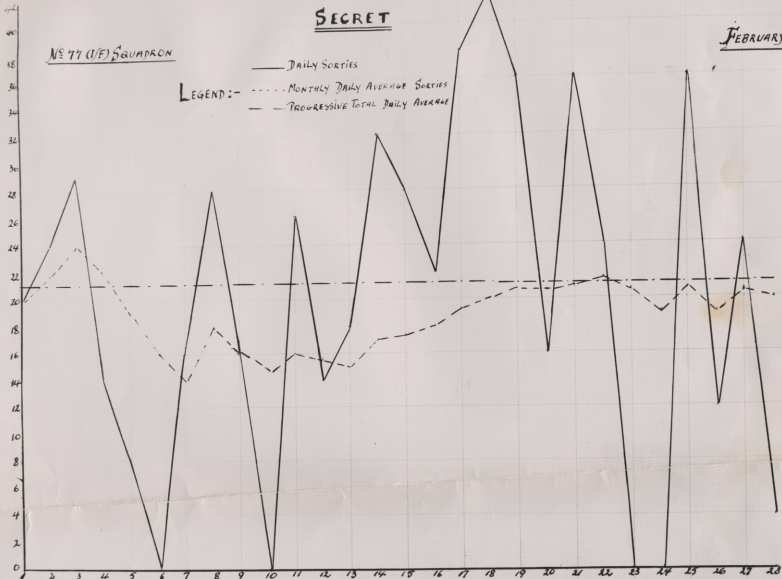 SECRET
FEBRUARY
No 77 (I/F) SQUADRON
LEGEND:-
DAILY SORTIES
MONTHLY DAILY AVERAGE SORTIES
PROGRESSIVE TOTAL DAILY AVERAGE
42
40
38
36
34
32
30
28
26
24
22
20
18
16
14
12
10
8
6
4
2
0
1 2 3 4 5 6 7 8 9 10 11 12 13 14 15 16 17 18 19 20 21 22 23 24 25 26 27 28